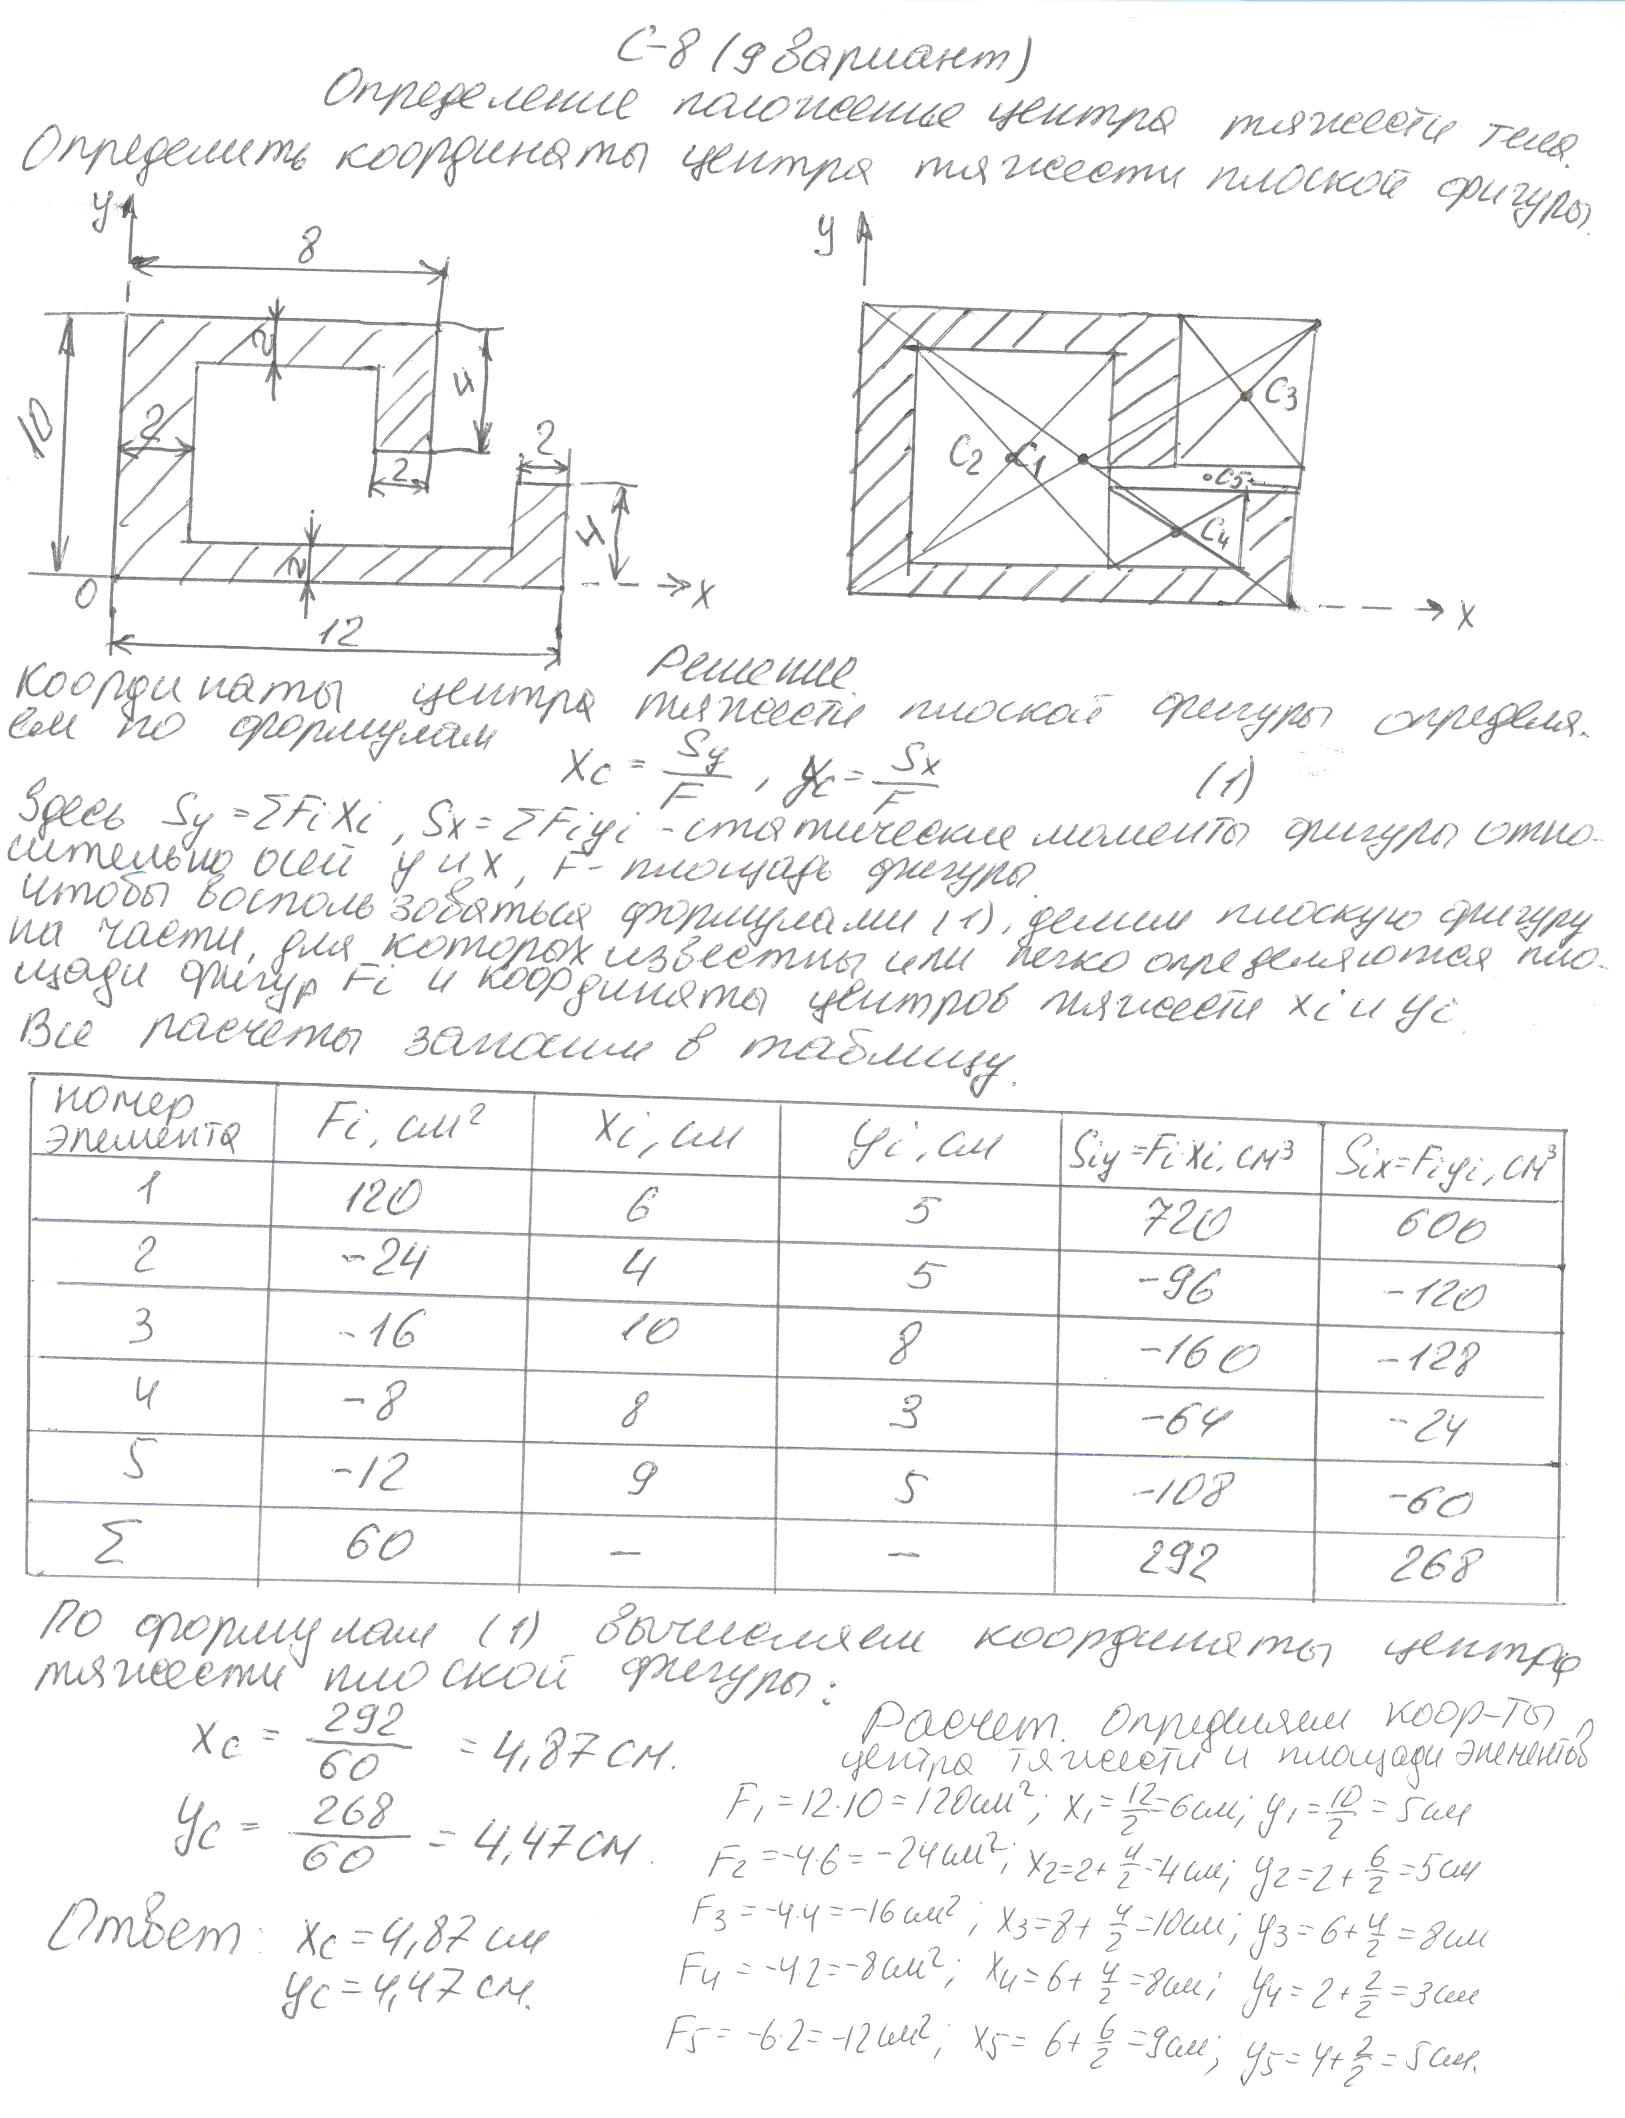 С-8 (9 вариант)
Определение положение центра тяжести тела.
Определить координаты центра тяжести плоской фигуры.
y
8
2
4
10
2
2
2
4
2
0
x
12
y
C3
C2
C1
C5
C4
x
Решение.
Координаты центра тяжести плоской фигуры определя-
ем по формулам
Xc = Sy/F , yc = Sx/F (1)
Здесь Sy = ΣFiXi , Sx = ΣFiyi - статические моменты фигуры отно-
сительно осей y и x, F - площадь фигуры.
Чтобы воспользоваться формулами (1), делим плоскую фигуру
на части, для которых известны или легко определяются пло-
щади фигур Fi и координаты центров тяжести xi и yi.
Все расчеты запишем в таблицу.
номер элемента | Fi, см² | Xi, см | yi, см | Siy=Fi·Xi, см³ | Six=Fiyi, см³
1 | 120 | 6 | 5 | 720 | 600
2 | -24 | 4 | 5 | -96 | -120
3 | -16 | 10 | 8 | -160 | -128
4 | -8 | 8 | 3 | -64 | -24
5 | -12 | 9 | 5 | -108 | -60
Σ | 60 | – | – | 292 | 268
По формулам (1) вычисляем координаты центра
тяжести плоской фигуры:
Xc = 292/60 = 4,87 см.
yc = 268/60 = 4,47 см.
Ответ: Xc = 4,87 см
yc = 4,47 см.
Расчет. Определяем коор-ты
центра тяжести и площади элементов
F1 = 12·10 = 120 см²; x1 = 12/2 = 6 см; y1 = 10/2 = 5 см
F2 = -4·6 = -24 см²; x2 = 2 + 4/2 = 4 см; y2 = 2 + 6/2 = 5 см
F3 = -4·4 = -16 см²; x3 = 8 + 4/2 = 10 см; y3 = 6 + 4/2 = 8 см
F4 = -4·2 = -8 см²; x4 = 6 + 4/2 = 8 см; y4 = 2 + 2/2 = 3 см
F5 = -6·2 = -12 см²; x5 = 6 + 6/2 = 9 см; y5 = 4 + 2/2 = 5 см.